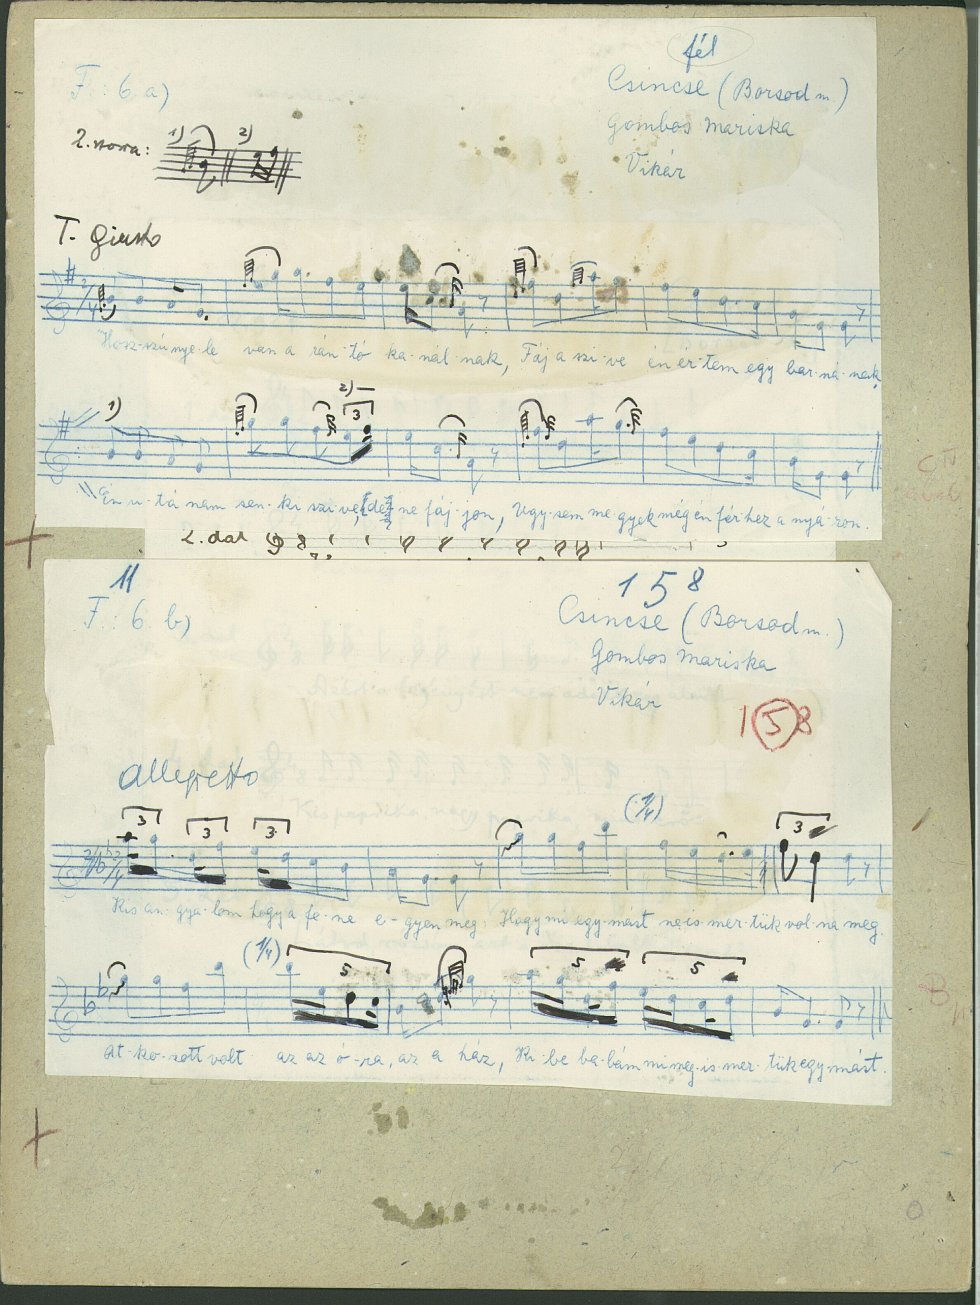 fél
F. : 6. a)
Csincse (Borsod m.)
Gombos Mariska
Vikár
1) 2)
T. giusto
2/4
Hosszúnye-le van a rán-tó ka-nál-nak, Fáj a szi-ve én er-tem egy bar-ná-nak,
1) 2) 3
Én u-tá nam sen-ki szi-ve, [de] ne fáj-jon, Ugy-sem me gyek még én férhez a nyá-ron.
2. dal
11
158
F. : 6. b)
Csincse (Borsod m.)
Gombos Mariska
Vikár
1 5 8
Allegretto
3 3 3 (1/4) 3
Kis an-gya-lom hogy a fe-ne e-gyen meg, Hogy mi egy-mást ne is mer-tük vol-na meg.
(1/4) 5 5 5
Át-ko-zott volt az az ó-ra, az a ház, Ki-be ba-bám mi meg-is-mer-tük egy-mást.